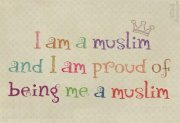 I am a muslim
and I am proud of
being me a muslim